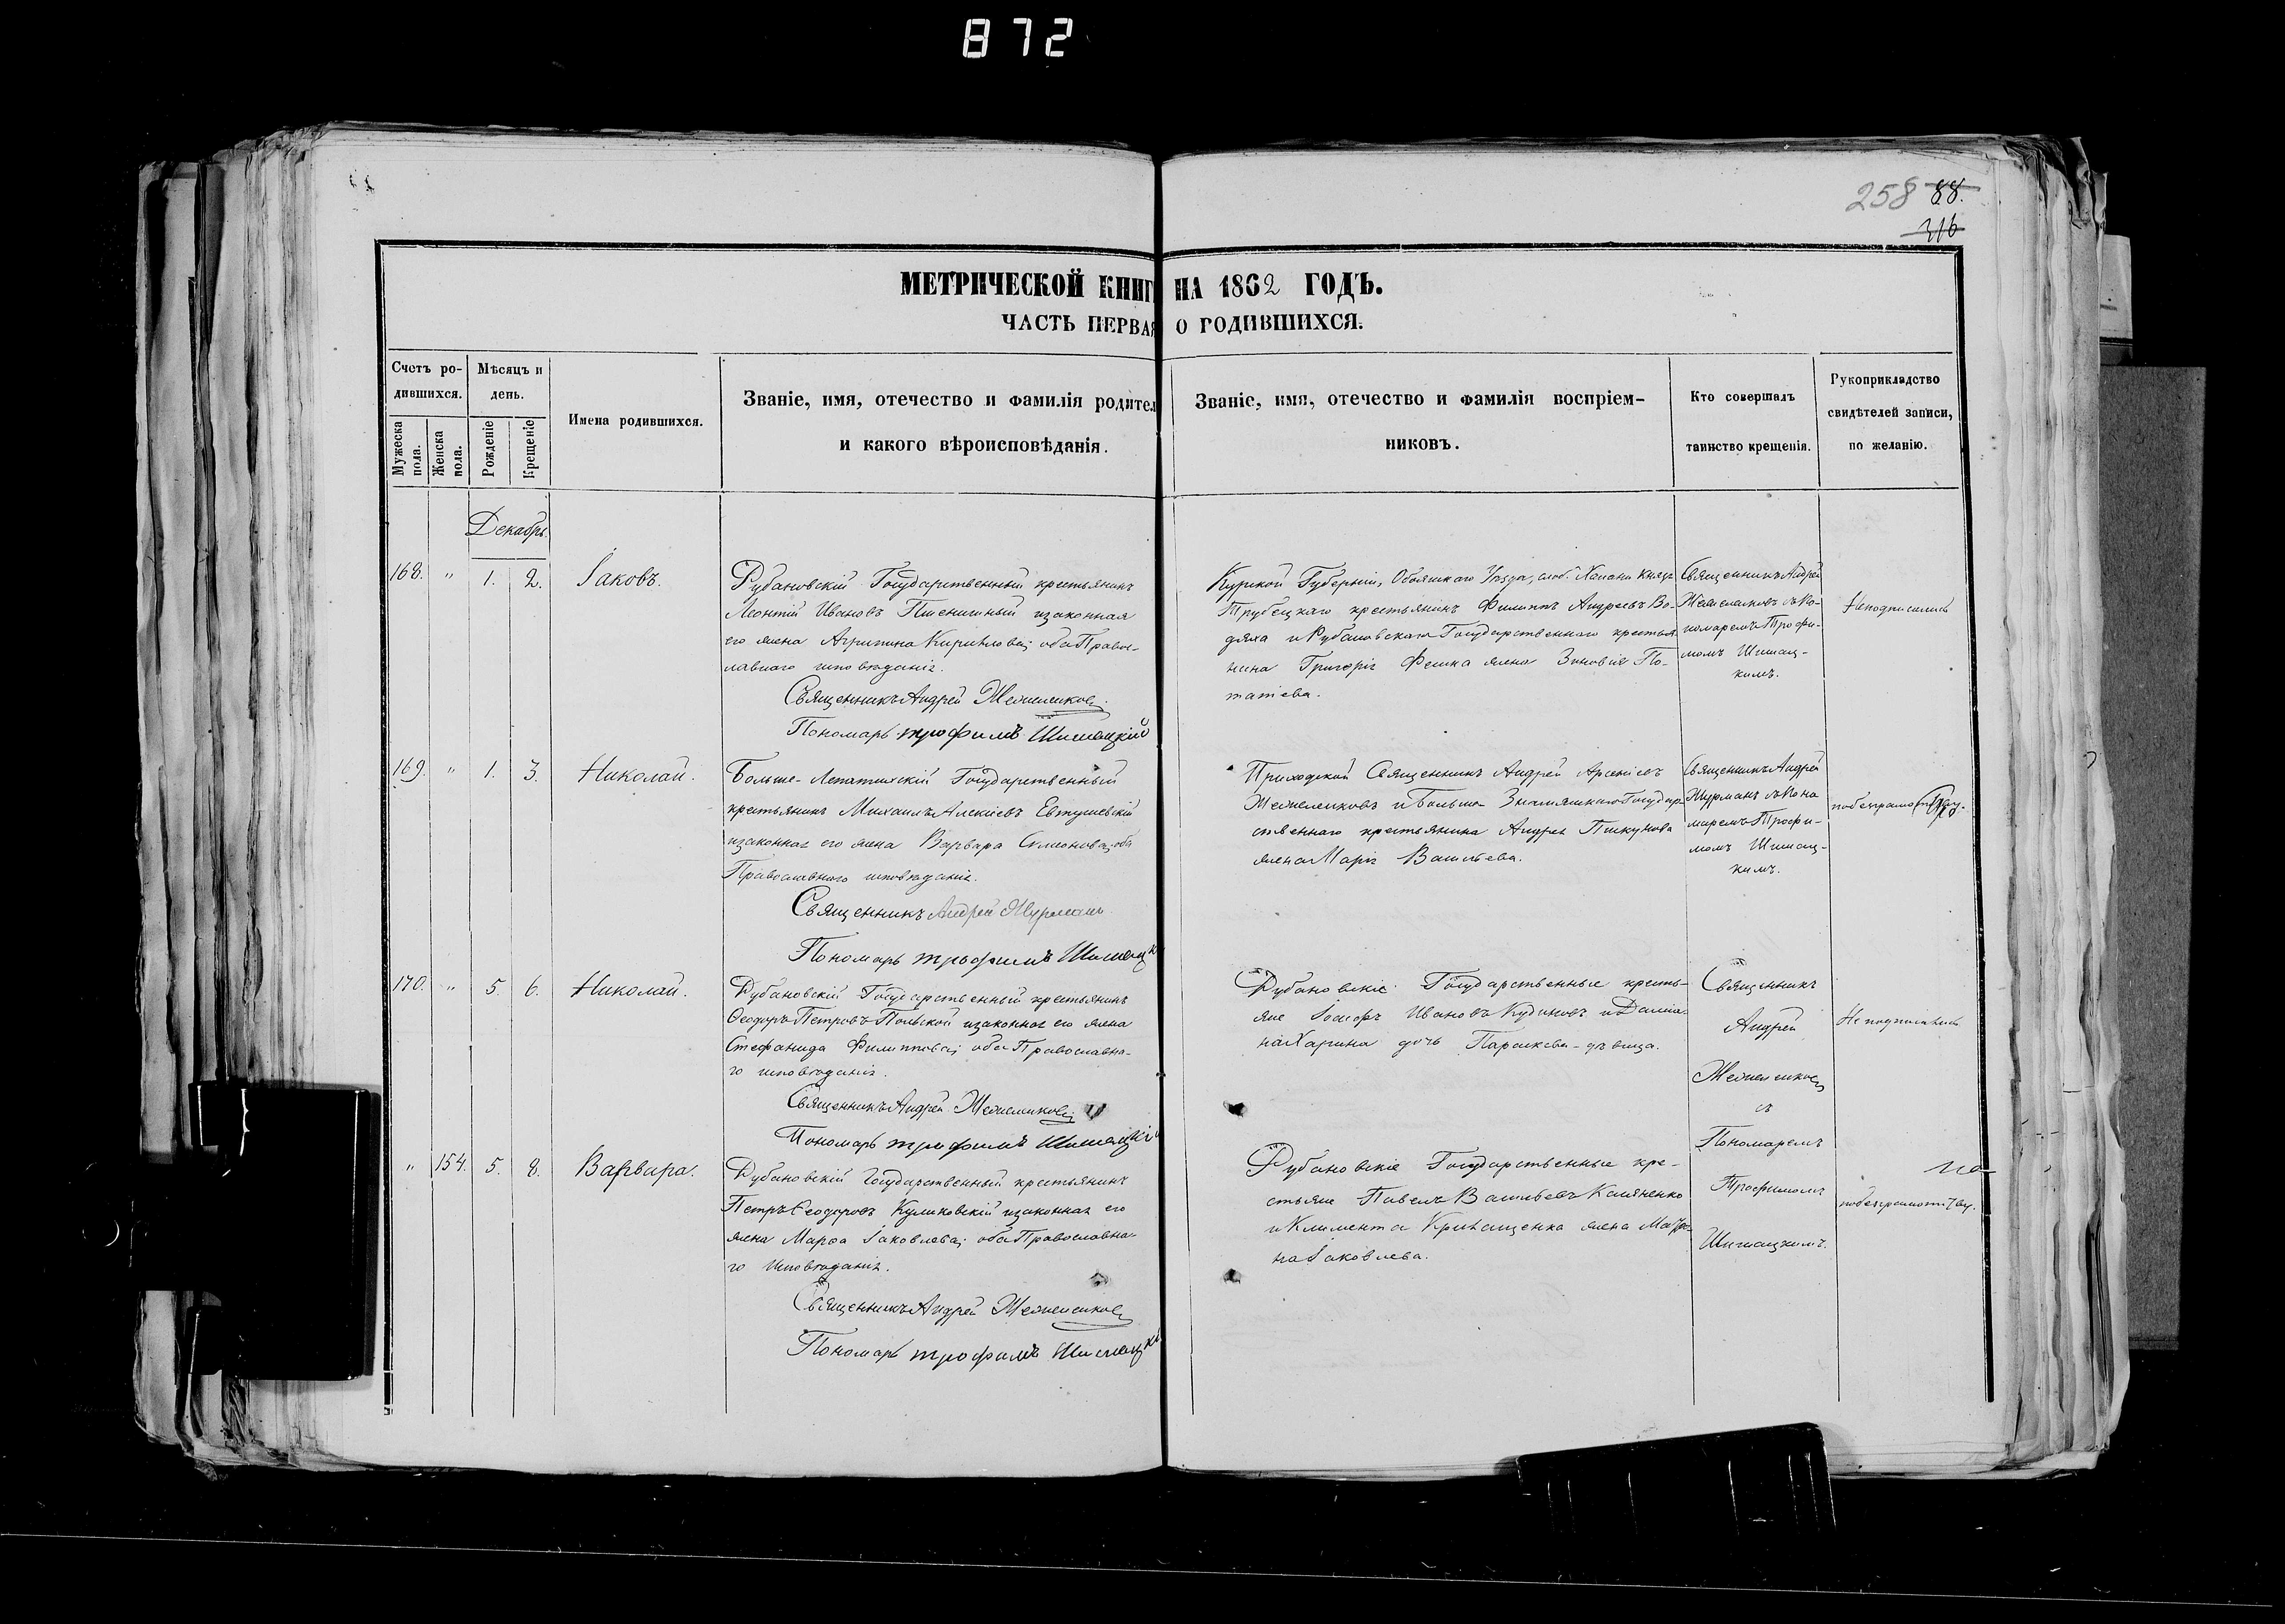 872
258 88.
316
МЕТРИЧЕСКОЙ КНИГ НА 1862 ГОДЪ.
ЧАСТЬ ПЕРВАЯ О ГОДИВШИХСЯ.
Счетъ ро-
дившихся.
Мужеска пола.
Женска пола.
Мѣсяцъ и
день.
Рожденіе
Крещеніе
Имена родившихся.
Званіе, имя, отечество и фамилія родител
и какого вѣроисповѣданія.
Званіе, имя, отечество и фамилія воспріем-
никовъ.
Кто совершалъ
таинство крещенія.
Рукоприкладство
свидѣтелей записи,
по желанію.
Декабрь.
168. " 1. 2. Іаковъ.
Рубановскій Государственный крестьянинъ
Леонтій Ивановъ Пшеничный изаконная
его жена Агрипина Кирилова; оба Правос-
лавнаго исповѣданія.
Священникъ Андрей Жежеликовъ.
Пономарь Трофимъ Шишацкій
Курской Губерніи, Обоянскаго Уѣзда, слоб. Князя
Трубецкаго крестьянинъ Филиппъ Андреевъ Во-
дяха и Рубановскаго Государственнаго крестья-
нина Григорія Фесика жена Зиновія По-
тапіева.
Священникъ Андрей
Жежеликовъ съ По-
номаремъ Трофи-
момъ Шишац-
кимъ.
Неподписались
169. " 1. 3. Николай.
Больше-Лепатихскій Государственный
крестьянинъ Михаилъ Алексіевъ Евтушевскій
изаконная его жена Варвара Симеонова; оба
Православнаго исповѣданія.
Священникъ Андрей Журманъ
Пономарь Трофимъ Шишацк
Приходской Священникъ Андрей Арсеніевъ
Жежеликовъ и Больше-Знаменскаго Государ-
ственнаго крестьянина Андрея Пикунова
жена Марія Васильева.
Священникъ Андрей
Журманъ съ Поно
маремъ Трофи-
момъ Шишац-
кимъ.
170. " 5. 6. Николай.
Рубановскій Государственный крестьянинъ
Ѳеодоръ Петровъ Польской изаконная его жена
Стефанида Филиппова; оба Православна-
го исповѣданія.
Священникъ Андрей Жежеликовъ
Пономарь Трофимъ Шишацкій
Рубановскіе Государственные кресть-
яне Іосифъ Ивановъ Кудиновъ и Даміа-
на Харина дочь Параскева - дѣвица.
Священникъ
Андрей
Жежеликовъ
съ
Пономаремъ
Трофимомъ
Шишацкимъ.
Не подписались
" 154. 5. 8. Варвара.
Рубановскій Государственный крестьянинъ
Петръ Ѳеодоровъ Куликовскій изаконная его
жена Марѳа Іаковлева; оба Православна-
го Исповѣданія.
Священникъ Андрей Жежеликовъ
Пономарь Трофимъ Шишацкі
Рубановскіе Государственные кре-
стьяне Павелъ Васильевъ Касяненко
и Климента Криващенка жена Матро-
на Іаковлева.